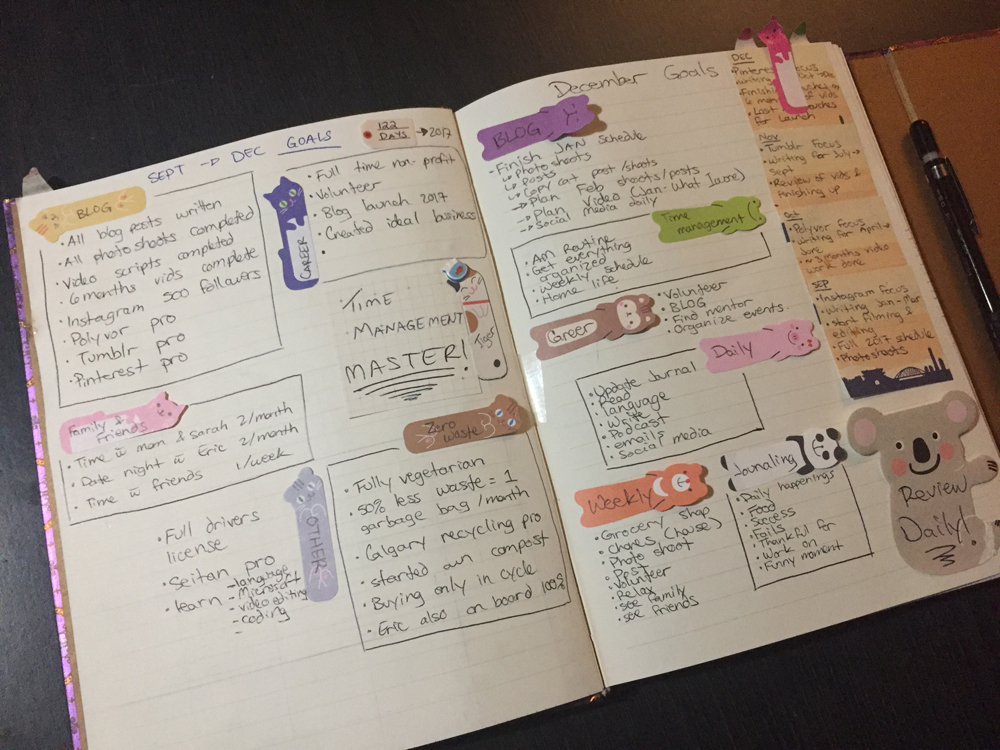 SEPT → DEC GOALS
122 DAYS → 2017
BLOG
• All blog posts written
• All photoshoots completed
• Video scripts completed
• 6 months vids complete
• Instagram 500 followers
• Polyvor pro
• Tumblr pro
• Pinterest pro
CAREER
• Full time non-profit
• Volunteer
• Blog launch 2017
• Created ideal business
•
TIME
MANAGEMENT
MASTER!
Family & Friends
• Time w mom & Sarah 2/month
• Date night w Eric 2/month
• Time w friends 1/week
OTHER
• Full drivers
license
• Seitan pro
• learn - language
- Microsoft
- video editing
- coding
-
Zero waste
• Fully vegetarian
• 50% less waste = 1
garbage bag/month
• Calgary recycling pro
• started own compost
• Buying only in cycle
• Eric also on board 100%
December Goals
BLOG
• Finish JAN schedule
↳ photoshoots
↳ posts
↳ copy cat post/shoots
→ Plan Feb shoots/posts
→ Plan video (Jan-What I wore)
→ Social media daily
Time management
• Am Routine
• Get everything
organized
• Weekly schedule
• Home life
Career
• Volunteer
• BLOG
• Find mentor
• Organize events
Daily
• Update Journal
• Read
• language
• Write
• Podcast
• emails
• Social media
Weekly
• Grocery shop
• chores (house)
• Photo shoot
• Post
• Volunteer
• Relax
• see family
• see friends
Journaling
• Daily happenings
• Food
• Success
• Fails
• Thankful for
• Work on
• Funny moment
DEC
• Pinterest focus
• writing Oct
• Finishing on
6 mon of vids
• Last
for launch
Nov
• Tumblr focus
• Writing for July →
Sept
• Review of vids &
finishing up
Oct
• Polyvor focus
• writing for April →
June
• ~3 months video
work done
SEP
• Instagram focus
• Writing Jan-Mar
• start filming &
editing
• Full 2017 schedule
• Photoshoots
Review
Daily!